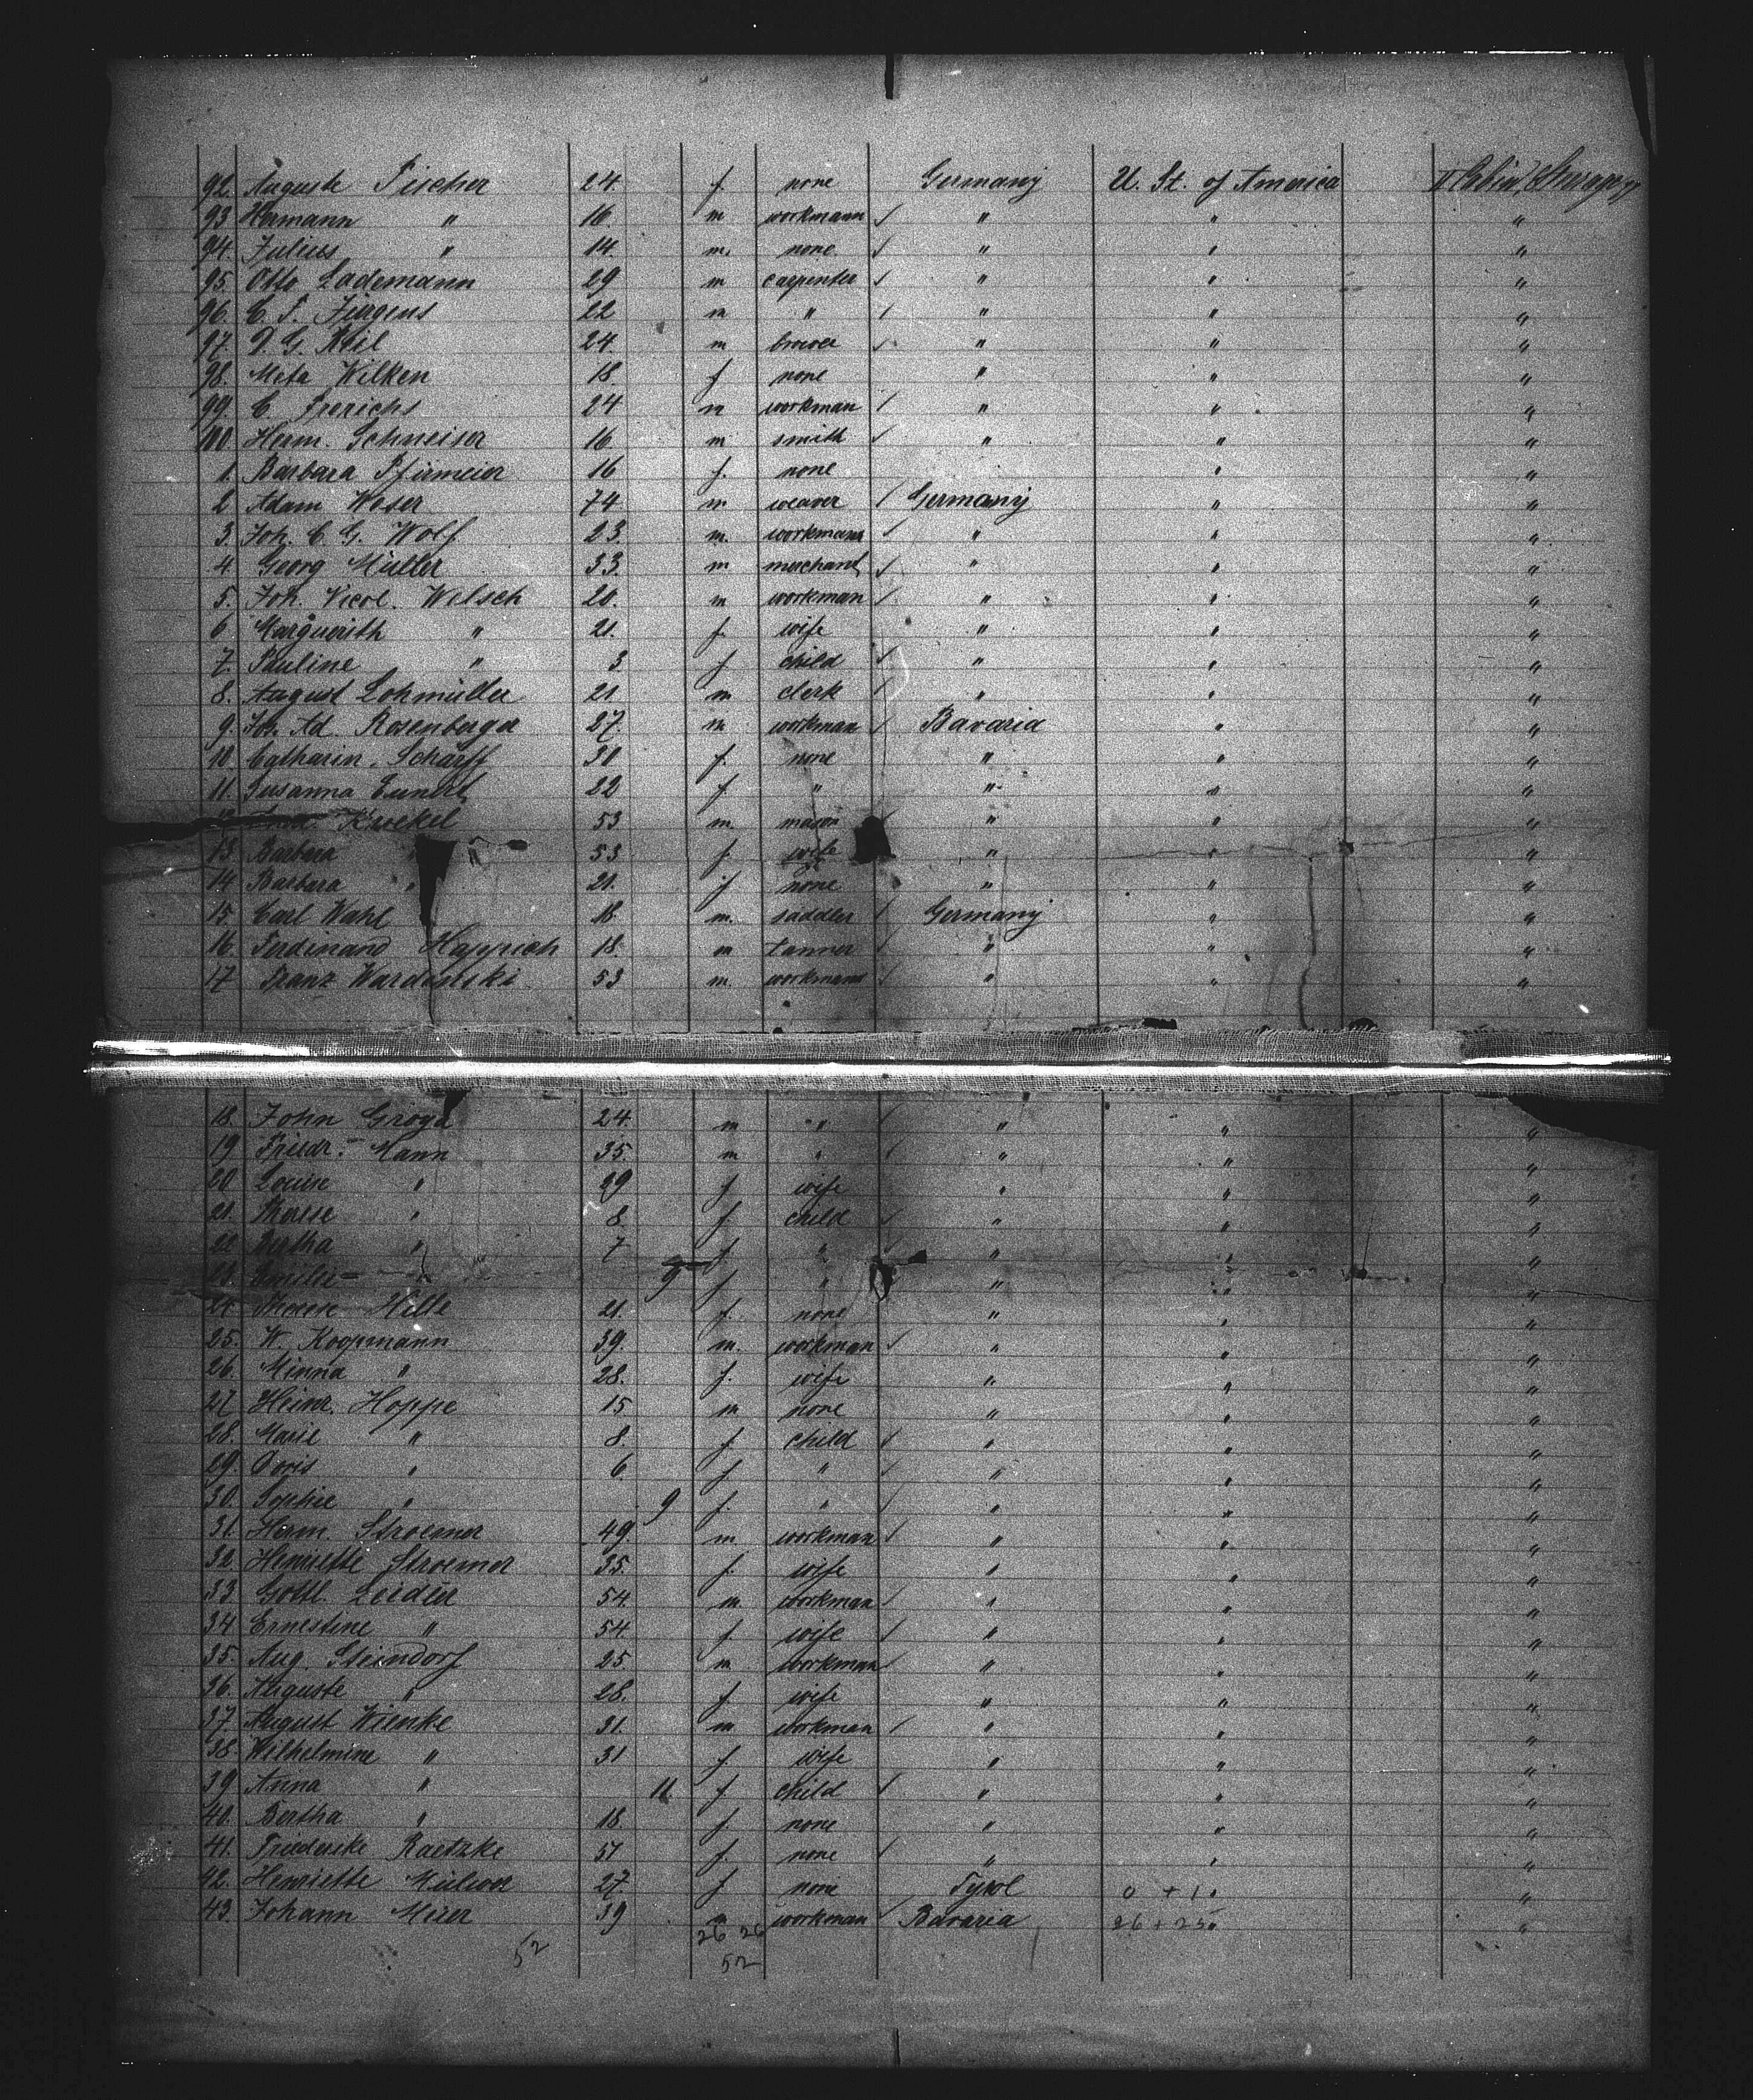 92. Auguste Fischer 24. f. none Germany U. St. of America II Cabin (Steerage)
93 Hermann " 16. m workmann " " "
94. Julius " 14. m. none " " "
95. Otto Lademann 29 m carpenter " " "
96. C. F. Jürgens 22 m " " " "
97. D. G. Keil 24. m brewer " " "
98. Meta Wilken 18. f none " " "
99. C. Frerichs 24 m workman " " "
100. Herm. Schneiser 16 m smith " " "
1. Barbara 16 f. none " "
2 Adam Weser 74 m weaver Germany " "
3. Joh. C. G. Wolf 23. m. workmann " " "
4 Georg Müller 33. m merchant " " "
5. Joh. Nicol. Welsch 20. m workman " " "
6 Marguerith " 21. f. wife " " "
7. Pauline " 3 f child " " "
8. August Lohmüller 21 m clerk " " "
9. Joh. Ad. Rosenberger 27. m workman Bavaria " "
10 Catharin. Schärff 31 f. none " " "
11. Susanna 22 f. " " " "
53 m. mason " " "
13. Barbara " 53 f. wife " " "
14 Barbara " 21. f none " " "
15 Carl Wahl 18. m. saddler Germany " "
16. Ferdinand Happrich 18. m tanner " " "
17 Franz Wardenski 53 m. workmann " " "
18. John 24. m " " " "
19 Friedr. Mann 35. m " " " "
20 Louise " 29 f wife " " "
21. " 8. f. child " " "
22 Bertha " 7 f " " " "
Emilie 9 f " " " "
24 Hille 21. f. none " " "
25. W. Koopmann 39. m. workman " " "
26. Minna " 28. f. wife " " "
27 Heinr. Hoppe 15 m none " " "
28. Marie " 8. f child " " "
29. Doris " 6 f " " " "
30. Sophie " 9 f. " " " "
31. Herm. Stroemer 49. m workman " " "
32. Henriette Stroemer 35. f. wife " " "
33 Gottl. Zeidler 54. m workman " " "
34 Ernestine " 54. f. wife " " "
35. Aug. Steindorf 25 m workman " " "
36. Auguste " 28. f wife " " "
37. August Wienke 31. m workman " " "
38 Wilhelmine " 31 f wife " " "
39 Anna " 11. f child " " "
40. Bertha " 18 f. none " " "
41. Friederike Raetzke 51 f. none " " "
42. Henriette 27. f none Tyrol 0 + 1. "
43. Johann Meier 39 m workman Bavaria 26 + 25 "
26 26
52 52